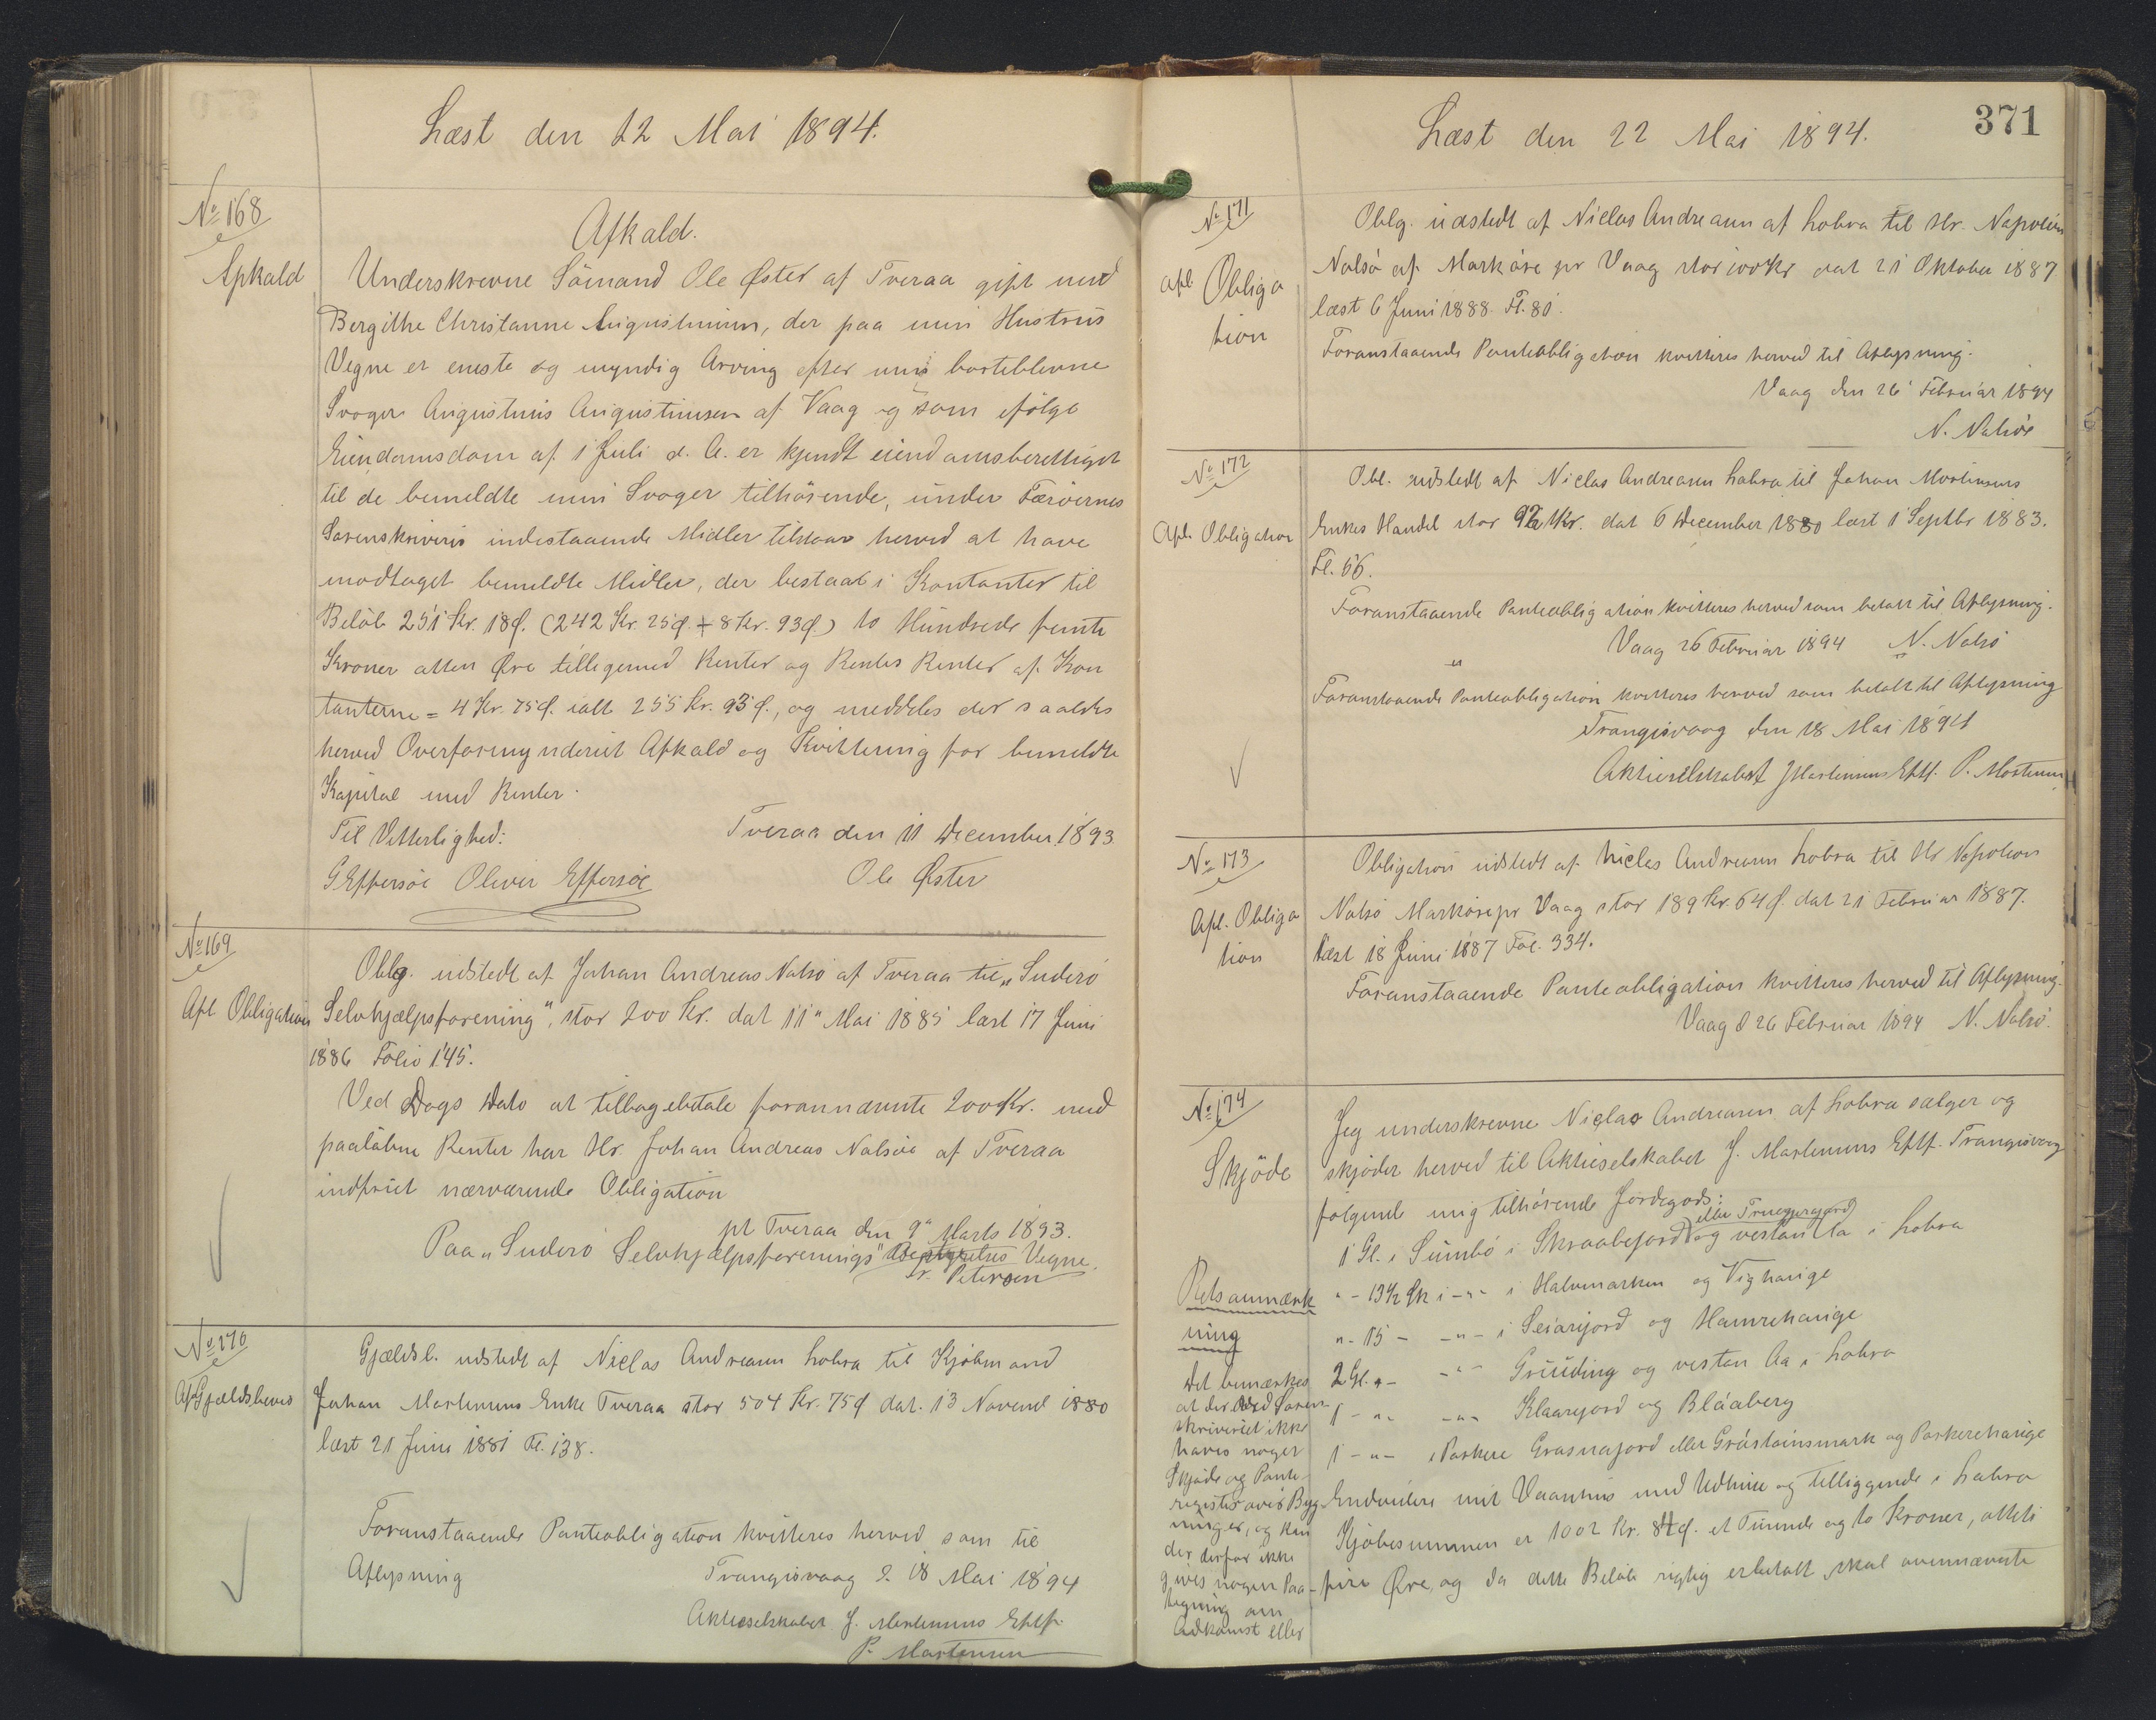 Læst den 12 Mai 1894.
No 168
Afkald
Afkald.
Underskrevne Sömand Ole Öster af Tveraa gift med
Bergithe Christanne Augustinussen, der paa min Hustrus
Vegne er eneste og myndig Arving efter min bortblevne
Svoger Augustinus Augustinusen af Vaag og som ifölge
Eiendomsdom af 1 Juli d. A. er kjendt eiendomsberettiget
til de bemeldte min Svoger tilhörende, under Færöernes
Sorenskriveri indestaaende Midler tilstaar herved at have
modtaget bemeldte Midler, der bestaar i Kontanter til
Belöb 251 Kr. 18 Ø. (242 Kr. 25 Ø + 8 Kr. 93 Ø.) to Hundrede femti
Kroner atten Øre tilligemed Renter og Rentes Renter af Kon
tanterne = 4 Kr. 75 Ø. ialt 255 Kr. 93 Ø., og meddeles der saaledes
herved Overformynderiet Afkald og Kvittering for bemeldte
Kapital med Renter.
Til Vitterlighed:
Tveraa den 11 December 1893
G Effersöe Oliver Effersöe
Ole Öster
No 169
Afl Obligation
Oblg. udstedt af Johan Andreas Nalsö af Tveraa til „Suderö
Selvhjælpsforening", stor 200 Kr. dat 11" Mai 1885 læst 17 Juni
1886 Folio 145.
Ved Dags Dato at tilbagebetale forannævnte 200 Kr. med
paalöbne Renter har Hr. Johan Andreas Nalsöe af Tveraa
indfriet nærværende Obligation
pt Tveraa den 9" Marts 1893.
Paa „Suderö Selvhjælpsforenings" Bestyrelses Vegne.
Petersen
No 170
Afl Gjældsbevis
Gjældsb. udstedt af Niclas Andreasen Lobra til Kjöbmand
Johan Mortensens Enke Tveraa stor 504 Kr. 75 Ø dat. 13 Novemb 1880
læst 21 Juni 1881 Fl. 138.
Foranstaaende Panteobligation kvitteres herved som til
Aflysning
Trangisvaag d. 18 Mai 1894
Aktieselskabet J. Mortensens Eftf.
P. Mortensen
371
Læst den 22 Mai 1894.
No 171
Afl Obliga
tion
Oblg. udstedt af Niclas Andreasen af Lobra til Hr. Napoleon
Nolsö af Marköre pr Vaag stor 100 Kr dat 21 Oktober 1887
læst 6 Juni 1888. Fl. 80.
Foranstaaende Panteobligation kvitteres herved til Aflysning.
Vaag den 26 Februar 1894
N. Nolsöe
No 172
Afl. Obligation
Obl. udstedt af Niclas Andreasen Lobra til Johan Mortensens
Enkes Handel stor Kr. dat 6 December 1880 læst 1 Septbr 1883.
Fl. 66.
Foranstaaende Panteobligation kvitteres herved som betalt til Aflysning.
Vaag 26 Februar 1894 N. Nolsö
Foranstaaende Panteobligation kvitteres herved som betalt til Aflysning
Trangisvaag den 18 Mai 1894
Aktieselskabet J Mortensens Eftf. P. Mortensen
No 173
Afl. Obliga
tion
Obligation udstedt af Niclas Andreasen Lobra til Hr Napoleon
Nolsö Marköre pr Vaag stor 189 Kr. 64 Ø. dat 21 Februar 1887.
læst 18 Juni 1887 Fol. 334.
Foranstaaende Panteobligation kvitteres herved til Aflysning.
Vaag d 26 Februar 1894 N. Nolsö.
No 174
Skjöde
Jeg underskrevne Niclas Andreasen af Lobra sælger og
skjöder herved til Aktieselskabet J. Mortensens Eftf. Trangisvaag
fölgende mig tilhörende Jordegods:
1 Gl. i Sumbö i Skraabejord og vestan Aa i Lobra
" - 13½ Sk i -"- i Halvmarken og
" - 15 - -"- i Seiarjord og Hamrehauge
2 Gl. " - -"- Gruiding og vestan Aa i Lobra
1 - " - -"- Klaarejord og Bláaberg
1 - " - i Porkere Grasnajord eller Grásteinsmark og Porkerehauge
Endvidere mit Vaanhus med Udhuse og tilliggende i Lobra
Kjöbesummen er 1002 Kr. 84 Ø. et Tusinde og to Kroner, otteti
fire Øre, og da dette Belöb rigtig erbetalt skal ovennævnte
Retsanmærk
ning
Det bemærkes
at der ved Soren-
skriveriet ikke
haves noget
Skjöde og Pante-
register over Byg-
ninger, og kan
der derfor ikke
gives nogen Paa-
tegning om
Adkomst eller